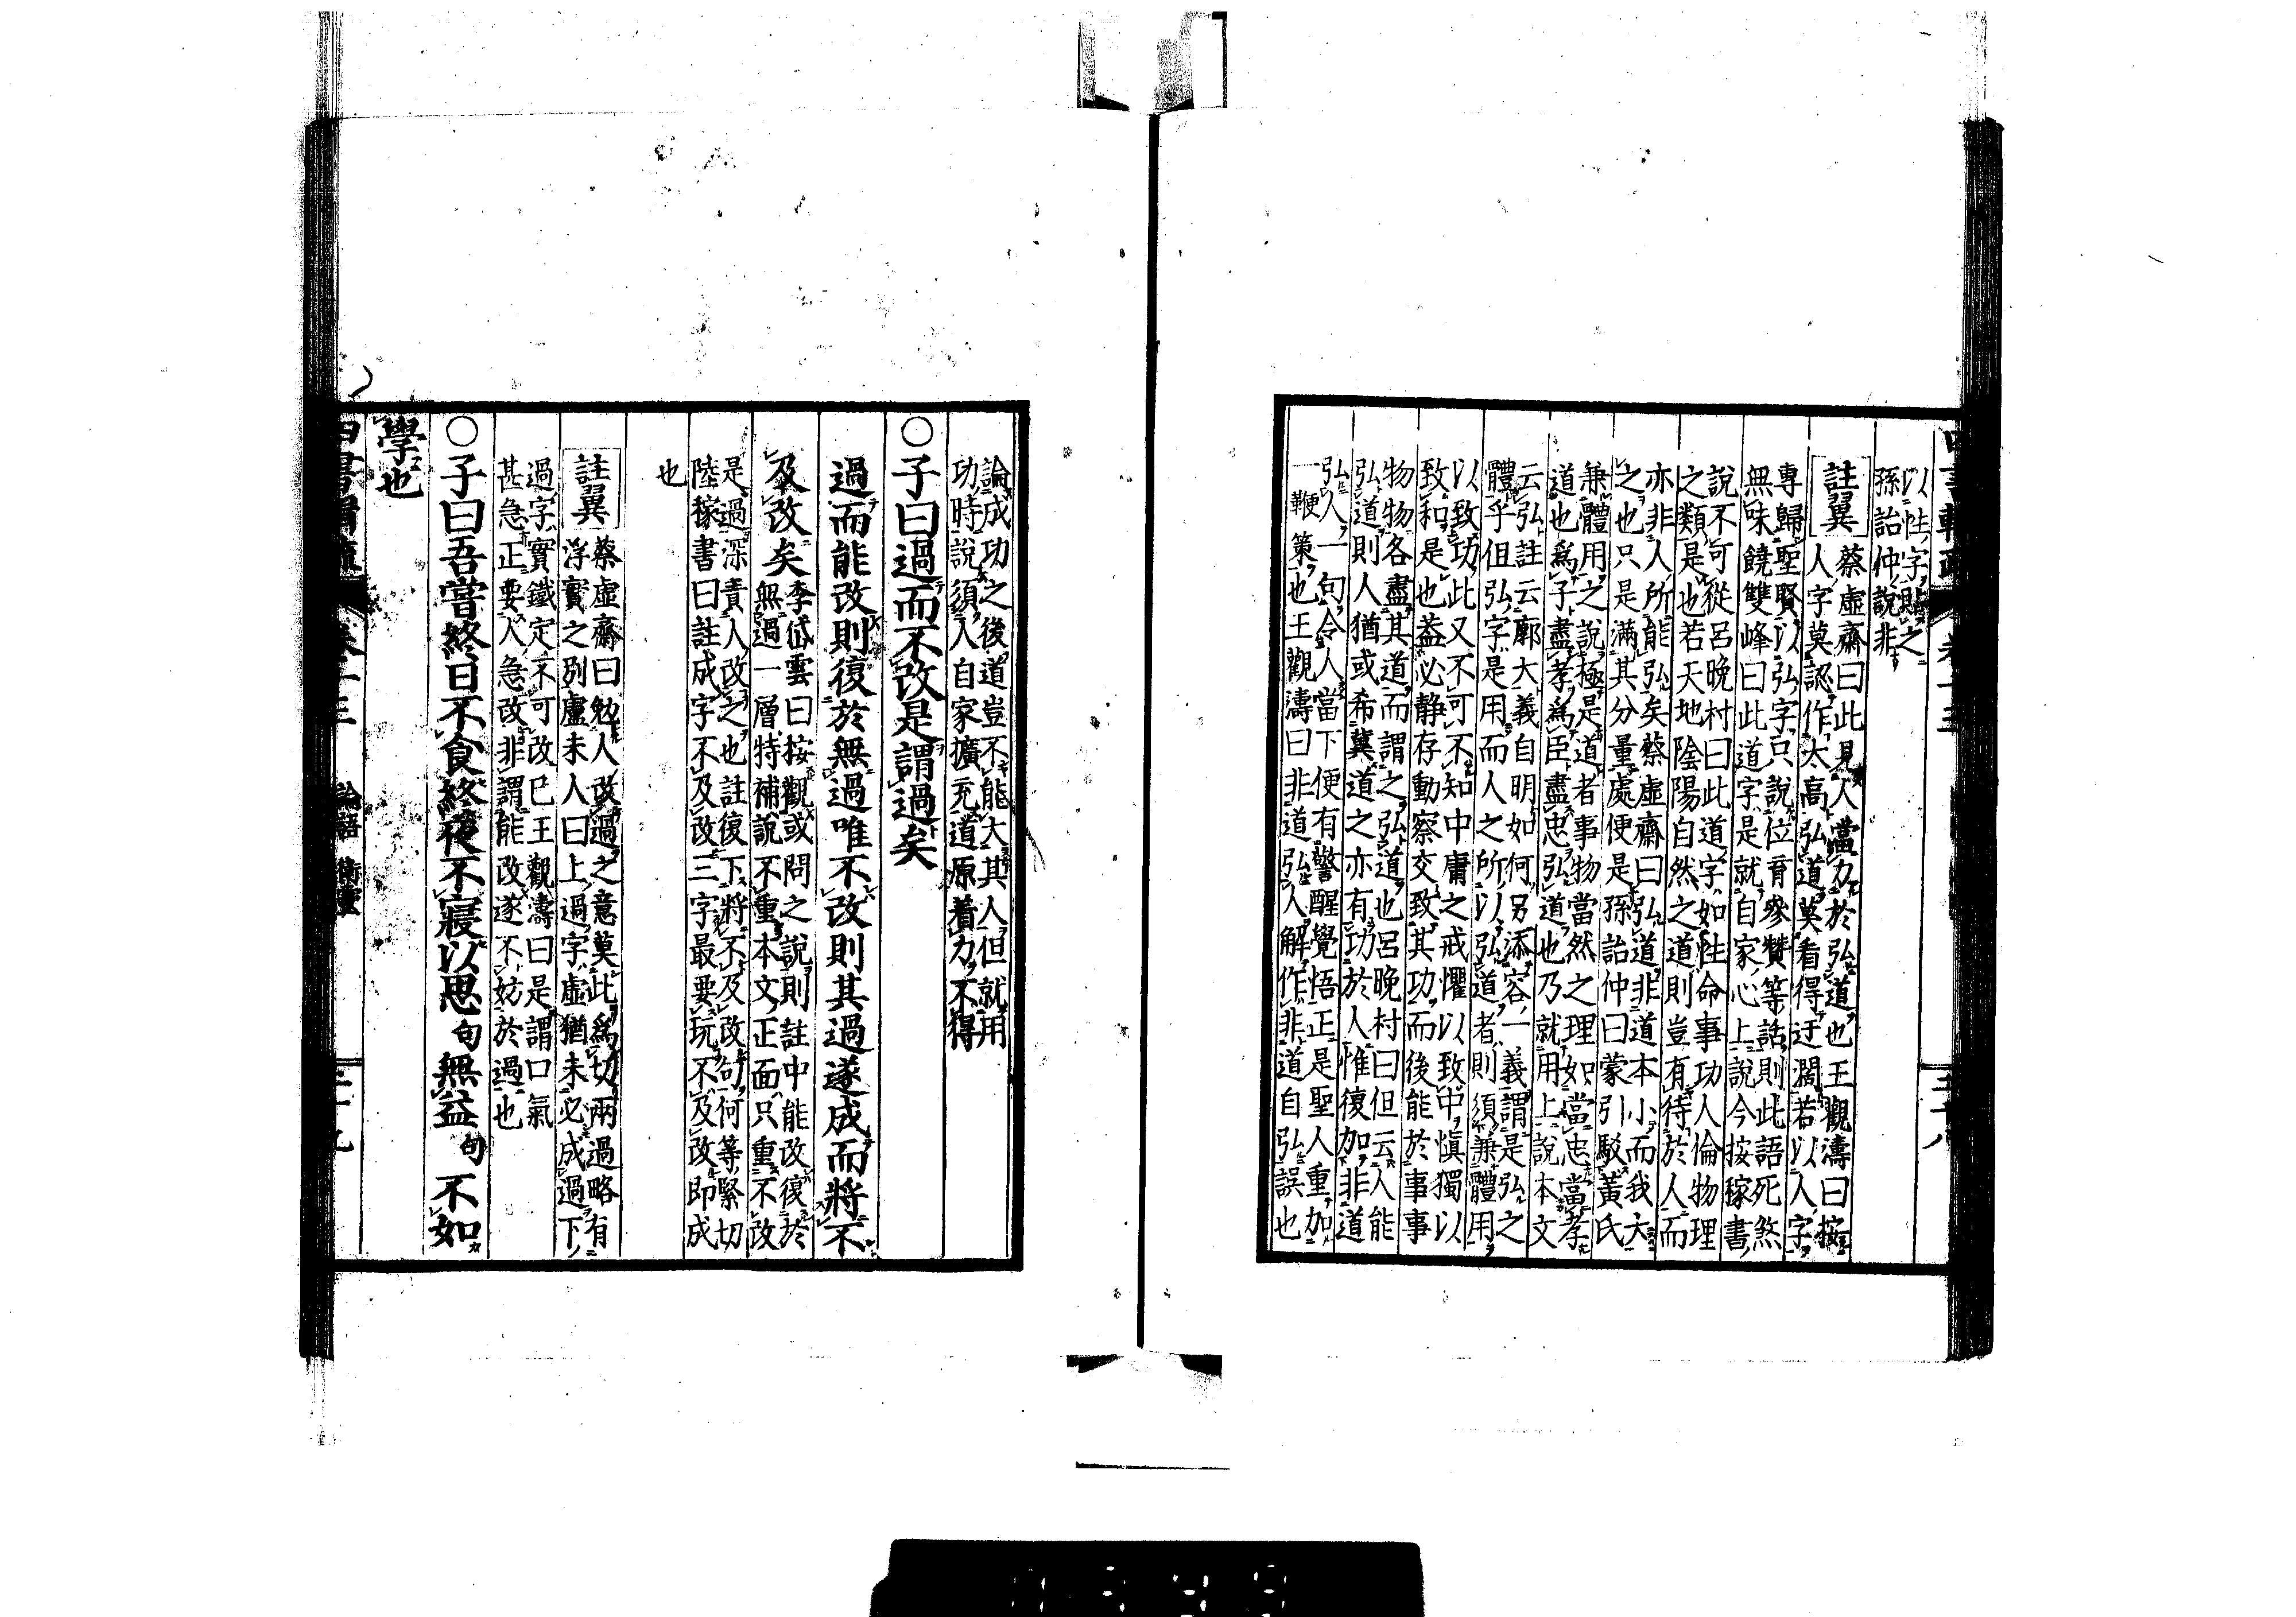 以性字貼之
孫詒仲說非
註翼 蔡虛齋曰此見人當力於弘道也王觀濤曰按
人字莫認作太高弘道莫看得迂濶若以人字
專歸聖賢以弘字只說位育參贊等話則此語死煞
無味饒雙峰曰此道字是就自家心上說今按稼書
說不可從呂晚村曰此道字如性命事功人倫物理
之類是也若天地陰陽自然之道則豈有待於人而
亦非人所能弘矣蔡虛齋曰弘道非道本小而我大
之也只是滿其分量處便是孫詒仲曰蒙引駁黃氏
兼體用之說極是道者事物當然之理如當忠當孝
道也爲子盡孝爲臣盡忠弘道也乃就用上說本文
云弘註云廓大義自明如何另添容一義謂是弘之
體乎但弘字是用而人之所以弘道者則須兼體用
以致功此又不可不知中庸之戒懼以致中愼獨以
致和是也盖必静存動察交致其功而後能於事事
物物各盡其道而謂之弘道也呂晚村曰但云人能
弘道則人猶或希冀道之亦有功於人惟復加非道
弘人一句令人當下便有警醒覺悟正是聖人重加
一鞭策也王觀濤曰非道弘人解作非道自弘誤也
論成功之後道豈不能大其人但就用
功時說須人自家擴充道原着力不得
○子曰過而不改是謂過矣
過而能改則復於無過唯不改則其過遂成而將不
及改矣
李岱雲曰按觀或問之說則註中能改復於
無過一層特補說不重本文正面只重不改
是過深責人改之也註復下將不及改句何等緊切
陸稼書曰註成字不及改三字最要玩不及改即成
也
註翼 蔡虛齋曰勉人改過之意莫此爲切兩過略有
浮實之列盧未人曰上過字虛猶未必成過下
過字實鐵定不可改已王觀濤曰是謂口氣
甚急正要人急改非謂能改遂不妨於過也
○子曰吾嘗終日不食終夜不寢以思句無益句不如
學也
論語 衛靈